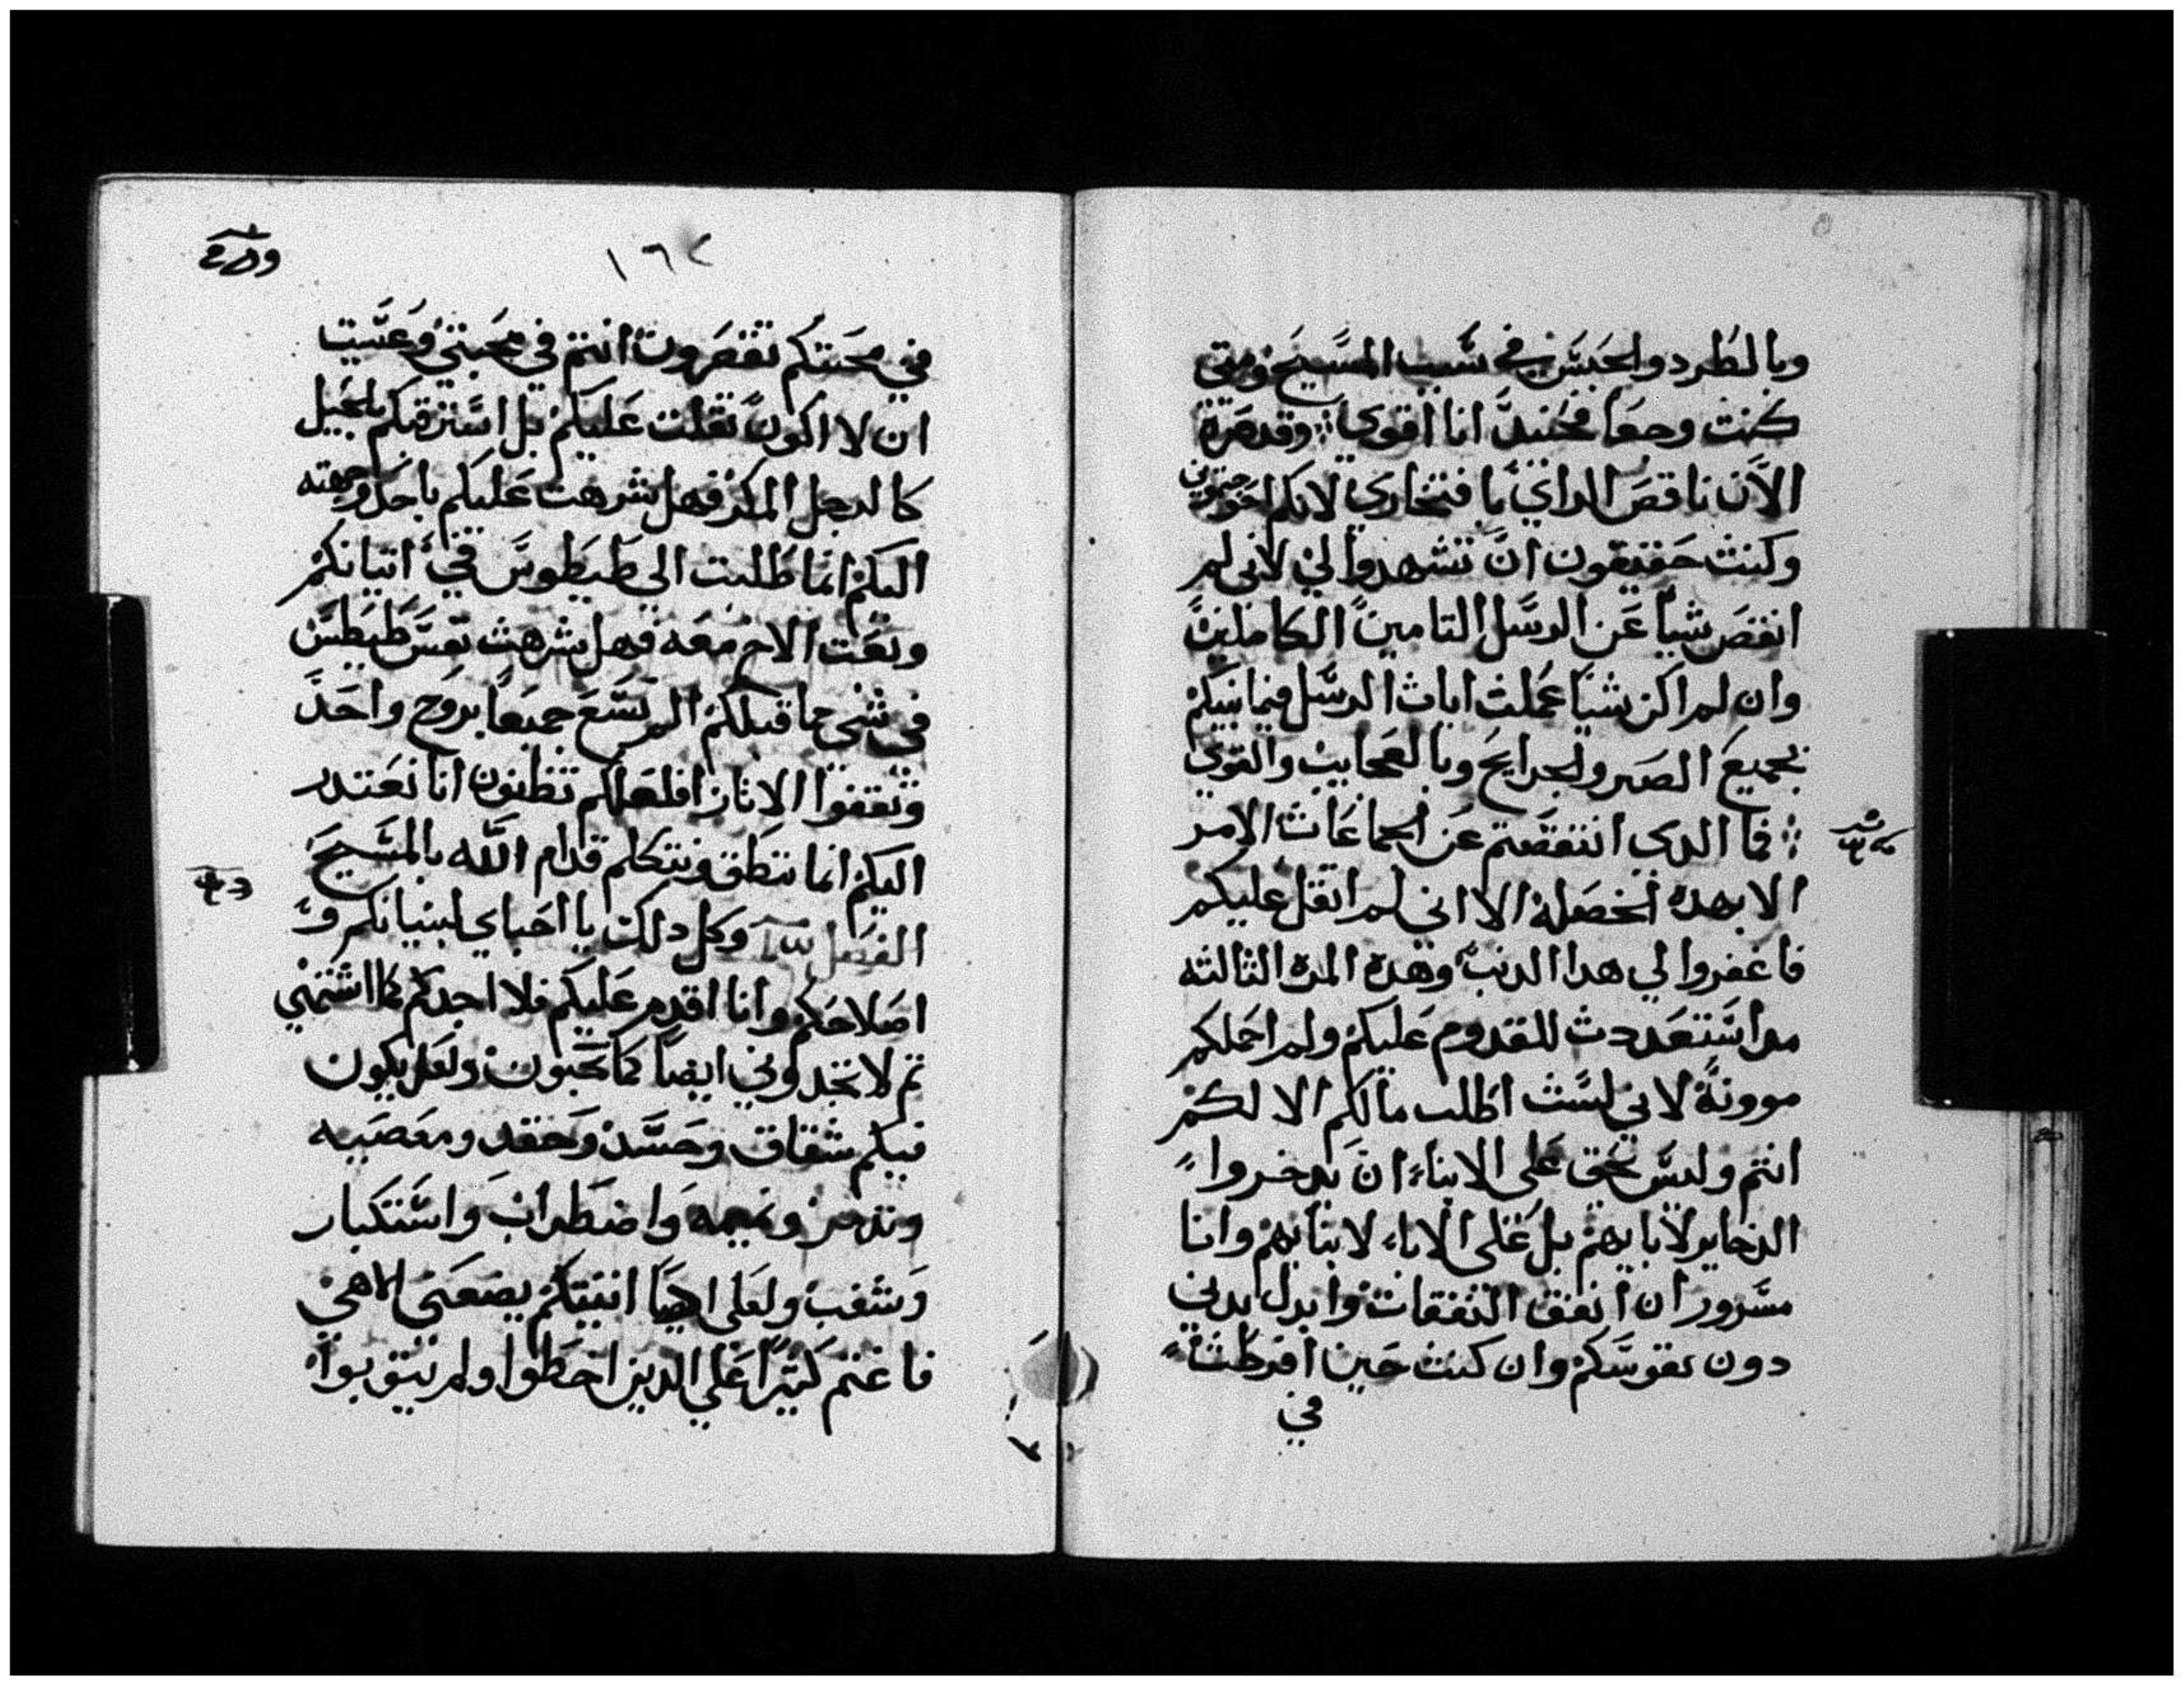 وبالطرد والحبس في سبب المسيح ومتى
كنت وجعا فحينيد انا اقوى وقد صرة
الان ناقص الراي بافتخاري لانكم احوجتموني
وكنت حقيقون ان تشهدوا لي لاني لم
انقص شيا عن الرسل التامين الكاملين
وان لم اكن شيا عملت ايات الرسل فيما بينكم
بجميع الصبر والجرايح وبالعجايب والقوى
فما الدى انتقصتم عن الجماعات الامر
الا بهده الخصله الا اني لم اتقل عليكم
فاغفروا لي هدا الدنب وهده المره الثالثه
مدا ستعددت للقدوم عليكم ولم احملكم
موونة لاني لست اطلب مالكم الا لكم
انتم وليس يحق على الابناء ان يدخروا
الدخاير لابايهم بل على الاباء لابنايهم وانا
مسرور ان انفق النفقات وابدل بدني
دون نفوسكم وان كنت حين افرطت
في
١٦٢
في محبتكم تقصرون انتم في محبتي وعسيت
ان لا اكون تقلت عليكم بل استرقتكم بالحيل
كالرجل المكر فهل شرهت عليكم باحد وجهته
اليكم انما طلبت الى طيطوس في اتيانكم
وبعت الاخ معه فهل شرهت نفس طيطس
في شي مما قبلكم الم نسع جميعا بروح واحد
ونقفوا الاثار افلعلكم تظنون انا نعتدر
اليكم انما ننطق ونتكلم قدام الله بالمسيح
الفصل وكل دلك يا احباي لبنيانكم و
اصلاحكم وانا اقدم عليكم فلا اجدكم كما اشتهي
تم لا تجدوني ايضا كما تحبون ولعل يكون
فيكم شقاق وحسد وحقد ومعصيه
وتدمر ونميمه واضطراب واستكبار
وشغب ولعلى ايضا اتيتكم يضعني الاهي
فاغتم كثيرا على الدين اخطوا ولم يتوبوا